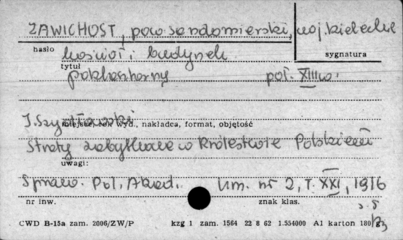 ZAWICHOST, pow. sandomierski, woj. kieleckie
hasło
kościół i budynek
sygnatura
tytuł
poklasztorny poł. XIII w.
J. Szydłowski
wyd., nakładca, format, objętość
Straty zabytkowe w Królestwie Polskiem
uwagi:
Spraw. Pol. Akad. Um. nr 2, T. XXI, 1916
s. 5
nr inw. znak klas.
CWD B-15a zam. 2006/ZW/P kzg 1 zam. 1564 22 8 62 1.554000 A1 karton 180